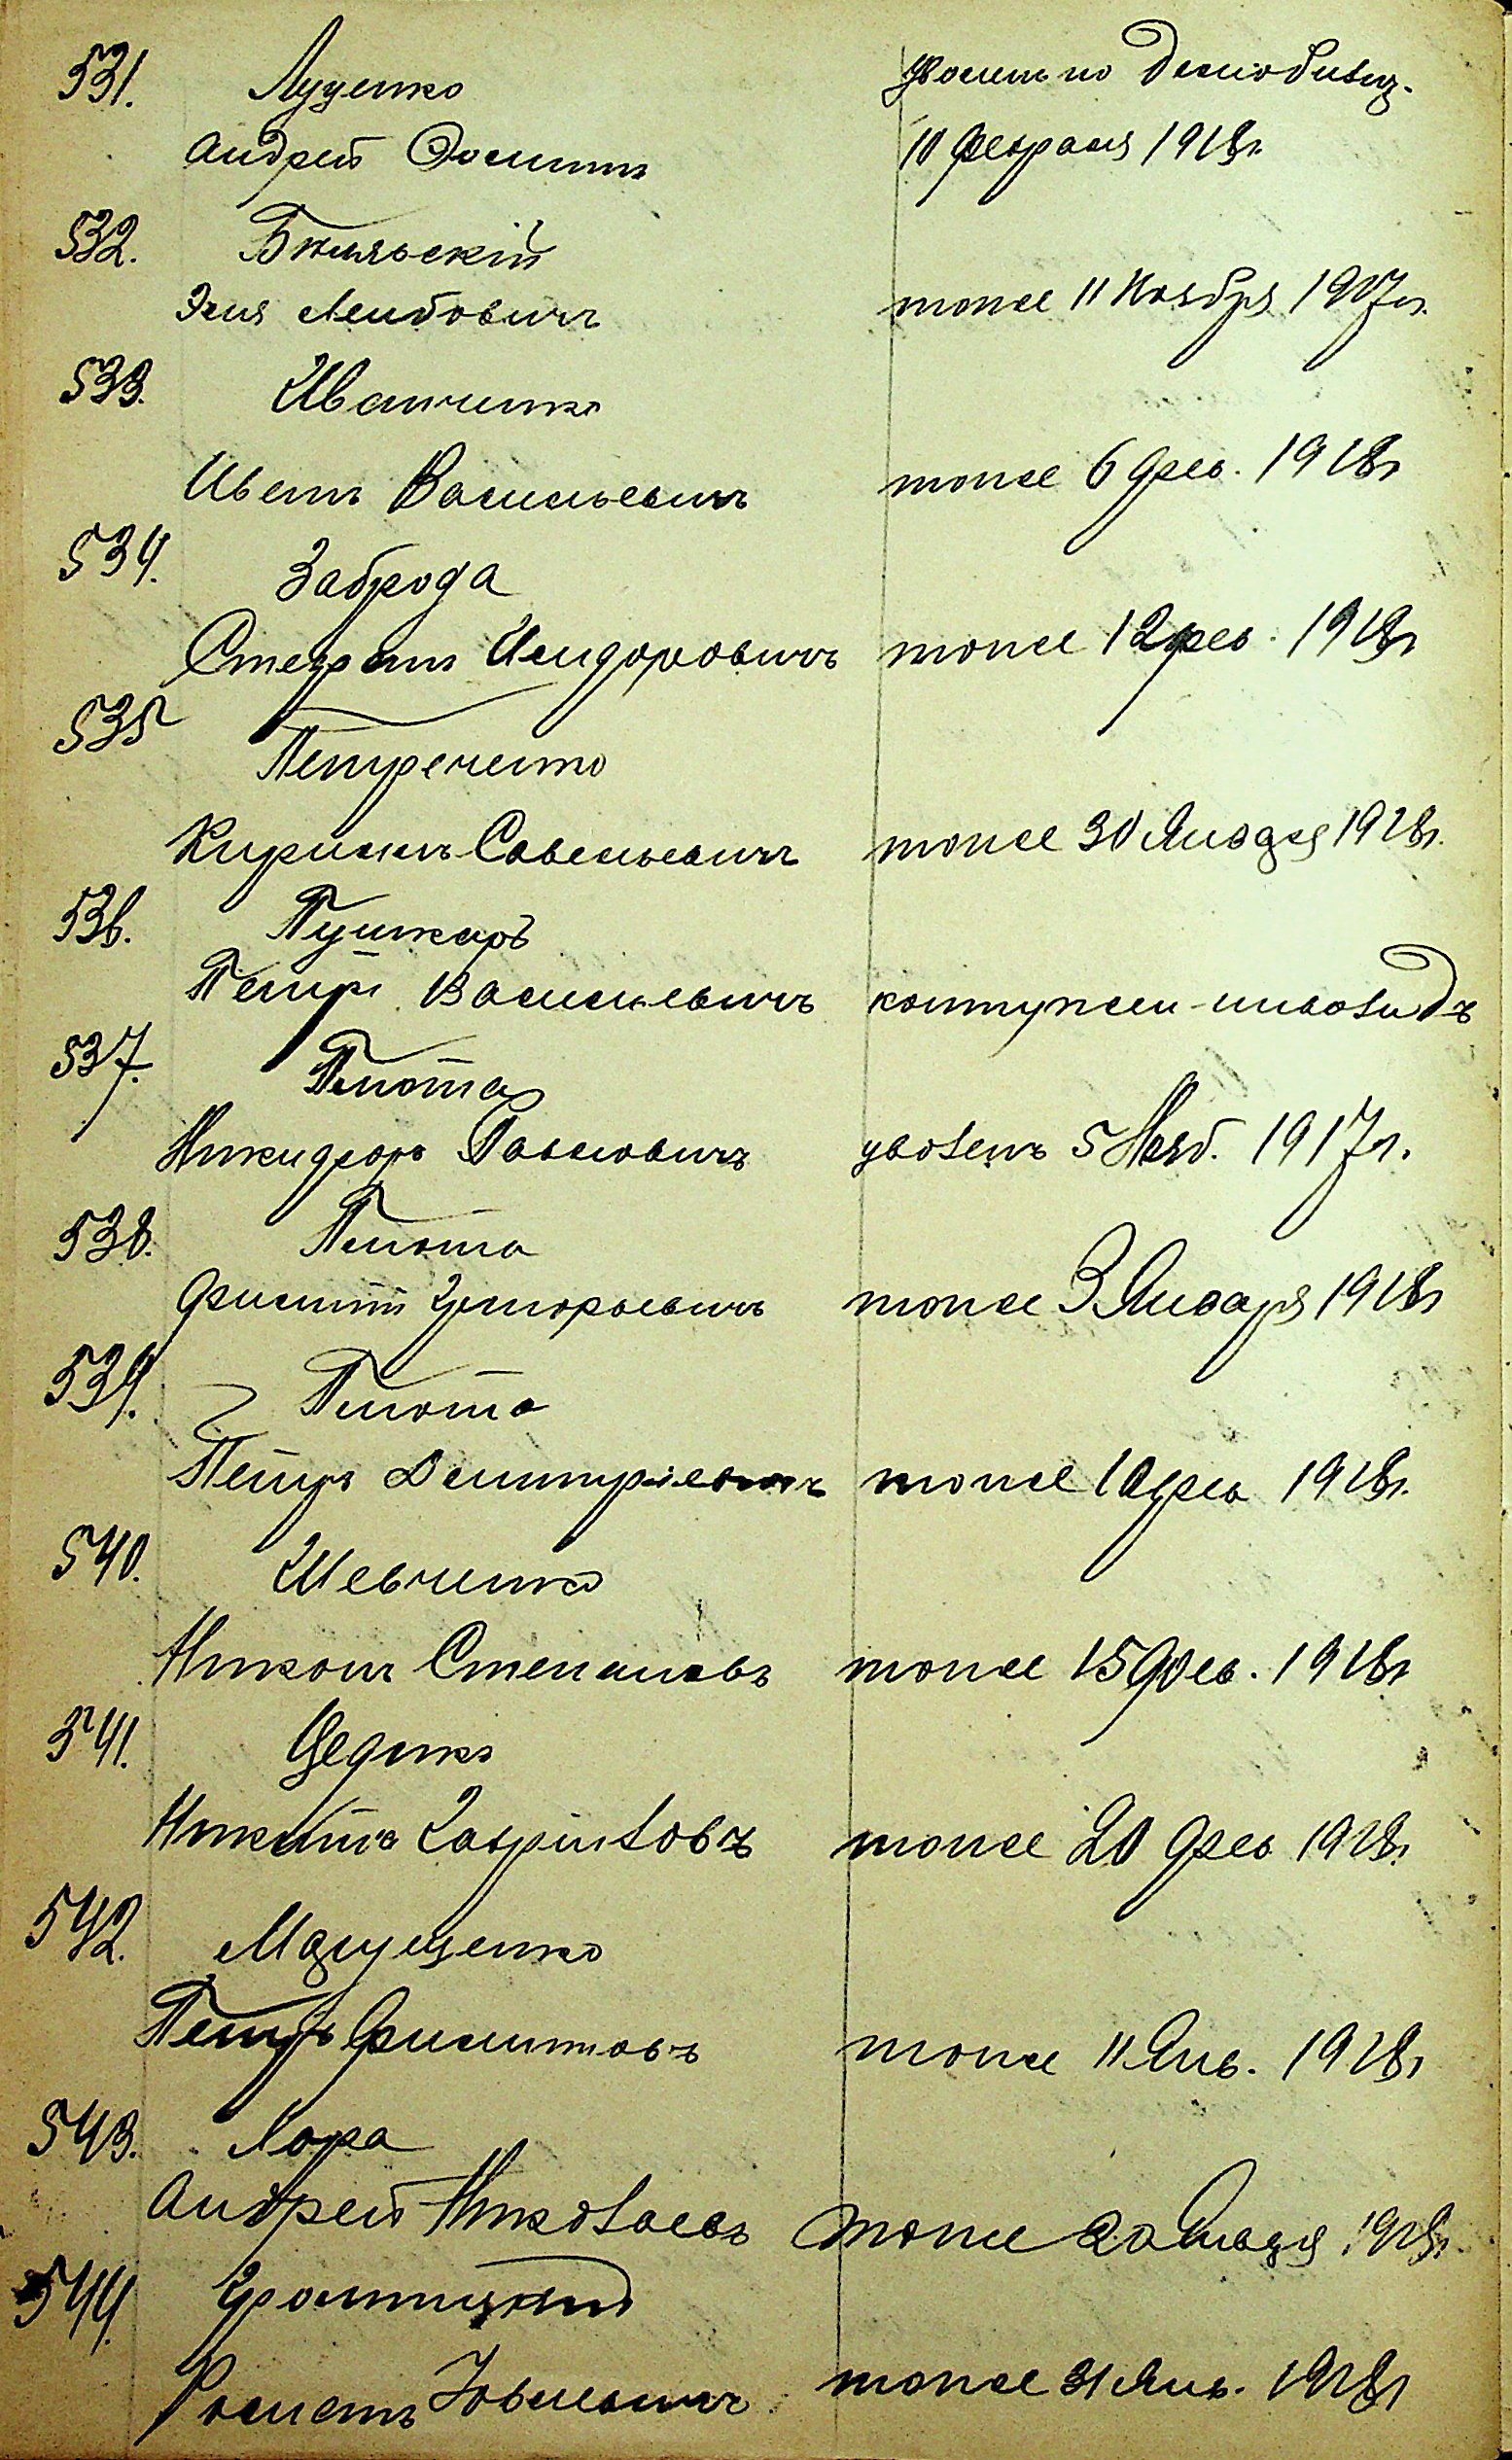 531. Луценко уволен по демобилиз.
Андрей Фомичъ 10 февраля 1918г.
532. Бѣльскій
Эля Лейбовичъ тоже 11 Ноября 1917г.
533. Иванченко
Иванъ Васильевичъ тоже 6 фев. 1918г
534. Заброда
Стефанъ Исидоровичъ тоже 12 фев. 1918г
535 Петренченко
Кирилъ Савельевичъ тоже 30 Января 1918г.
536. Пушкарь
Петръ Васильевичъ контужен-инвалидъ
537. Плюта
Никифоръ Павловичъ уволенъ 5 Нояб. 1917г.
538. Плюта
Филиппъ Григорьевичъ тоже 3 Января 1918г
539. Плюта
Петръ Дмитріевичъ тоже 10 фев 1918г.
540. Шевченко
Никонъ Степановъ тоже 15 фев. 1918г
541. Цедико
Никита Гавриловъ тоже 20 фев 1918г.
542. Мацуценко
Петръ Филиповъ тоже 11 Янв. 1918г
543. Лора
Андрей Николаевъ тоже 20 Января 1918г.
544.
Романъ тоже 31 Янв. 1918г